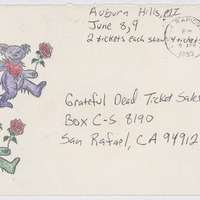 Auburn Hills, MI
June 8, 9
2 tickets each show - 4 tickets
Grateful Dead Ticket Sales
Box C-S 8190
San Rafael, CA 94912
RAPIDS
PM
1993